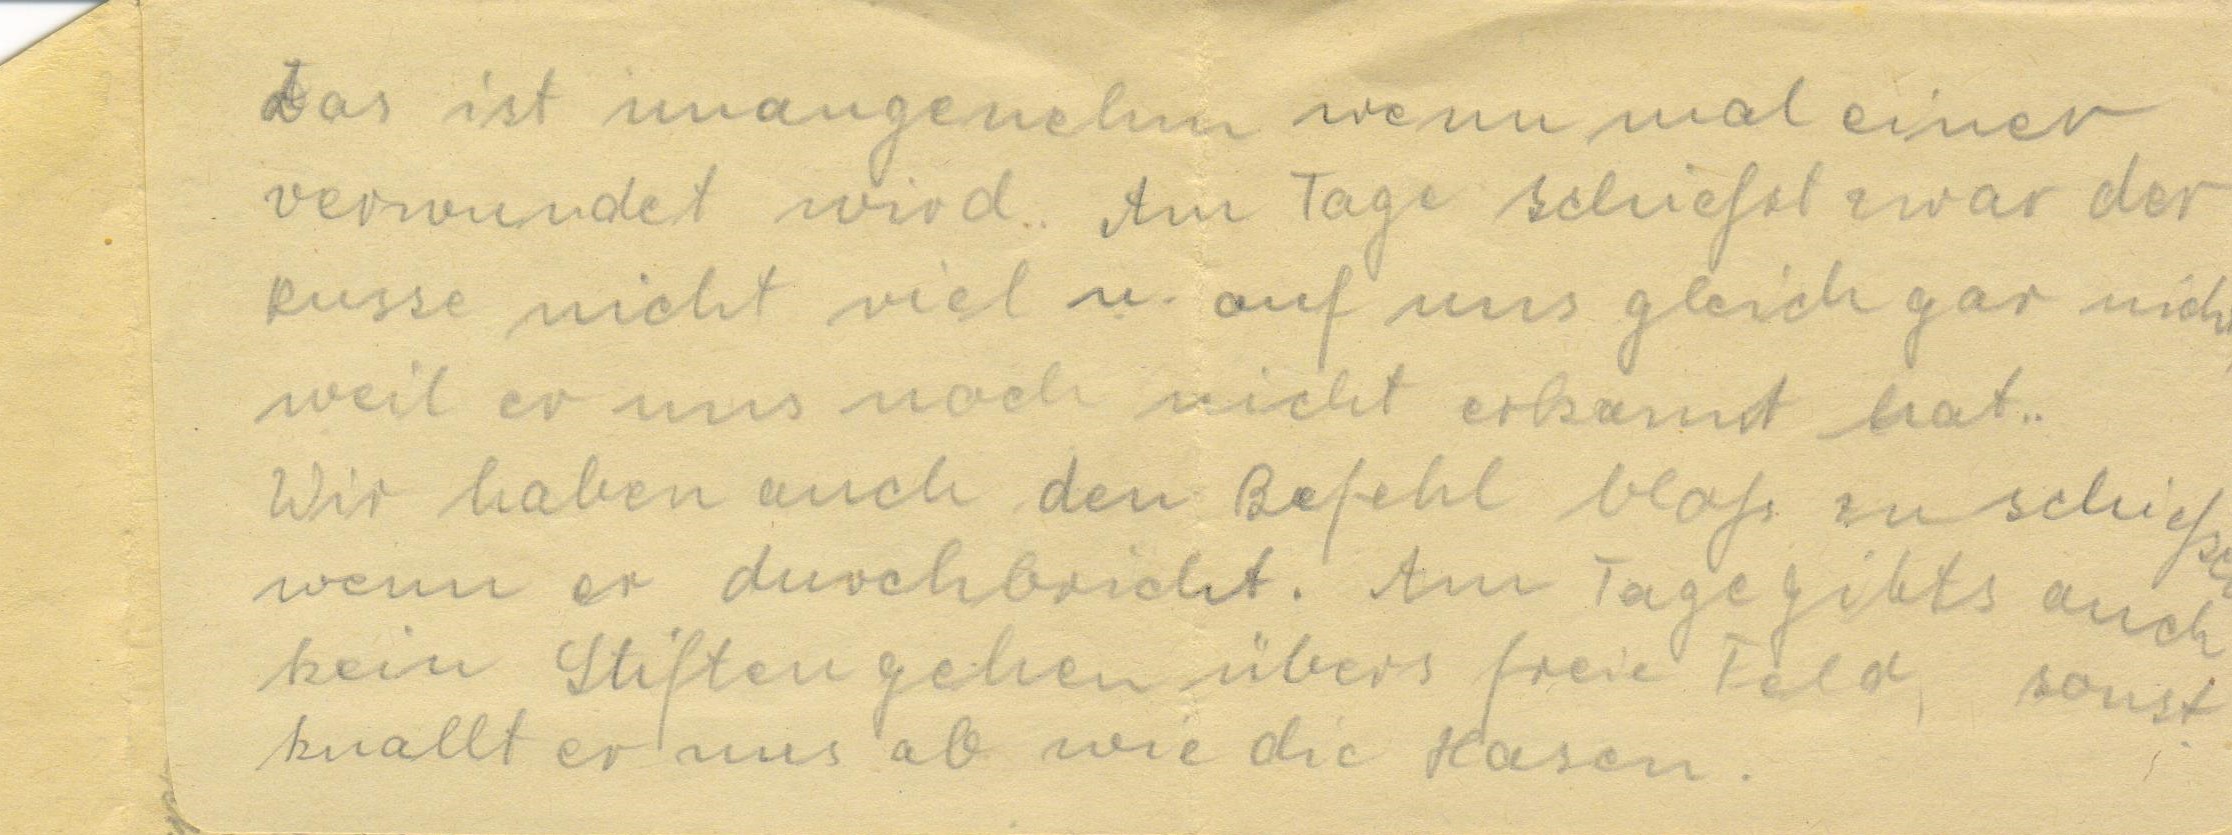 das ist unangenehm wenn mal einer
verwundet wird.. Am Tage schießt zwar der
Russe nicht viel u. auf uns gleich gar nicht,
weil er uns noch nicht erkannt hat..
Wir haben auch den Befehl bloß zu schießen
wenn er durchbricht. Am Tage gibts auch
kein Stiften gehen übers freie Feld, sonst
knallt er uns ab wie die Hasen.